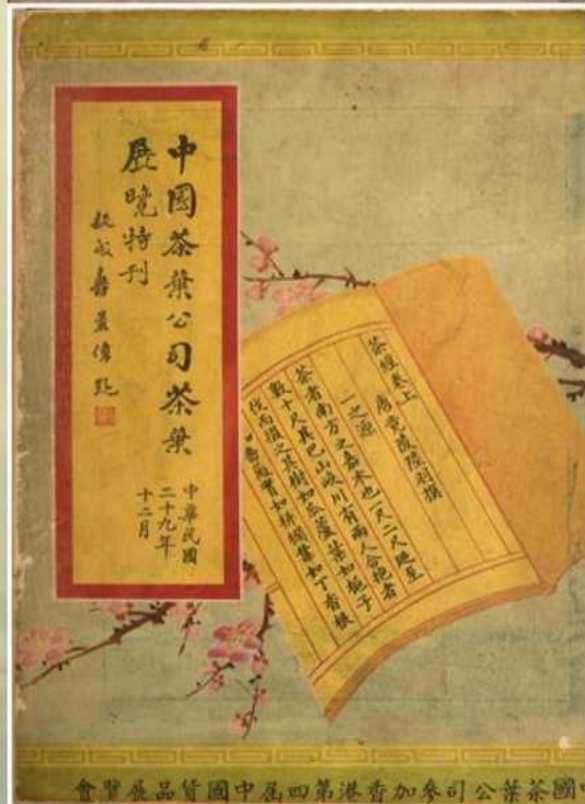 中國茶葉公司茶葉
展晚特刊
中華民國
二十九年
十二月
茶經卷上
唐竟陵陸羽撰
一之源
茶者南方之嘉木也一尺二尺迺至
數十尺其巴山峽川有兩人合抱者
伐而掇之其樹如瓜蘆葉如梔子
實如栟櫚蕾如丁香根
會覽展品貨國中屆四第港香加參司公葉茶國